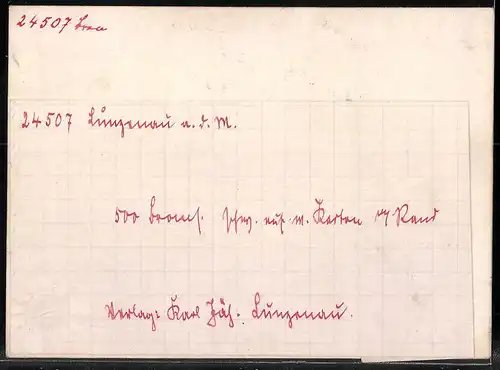 24507 Brom
24507 Lunzenau a. d. M.
500 Broms. schw. auf m. Karton m/ Rand
Verlag: Karl Jäh. Lunzenau.